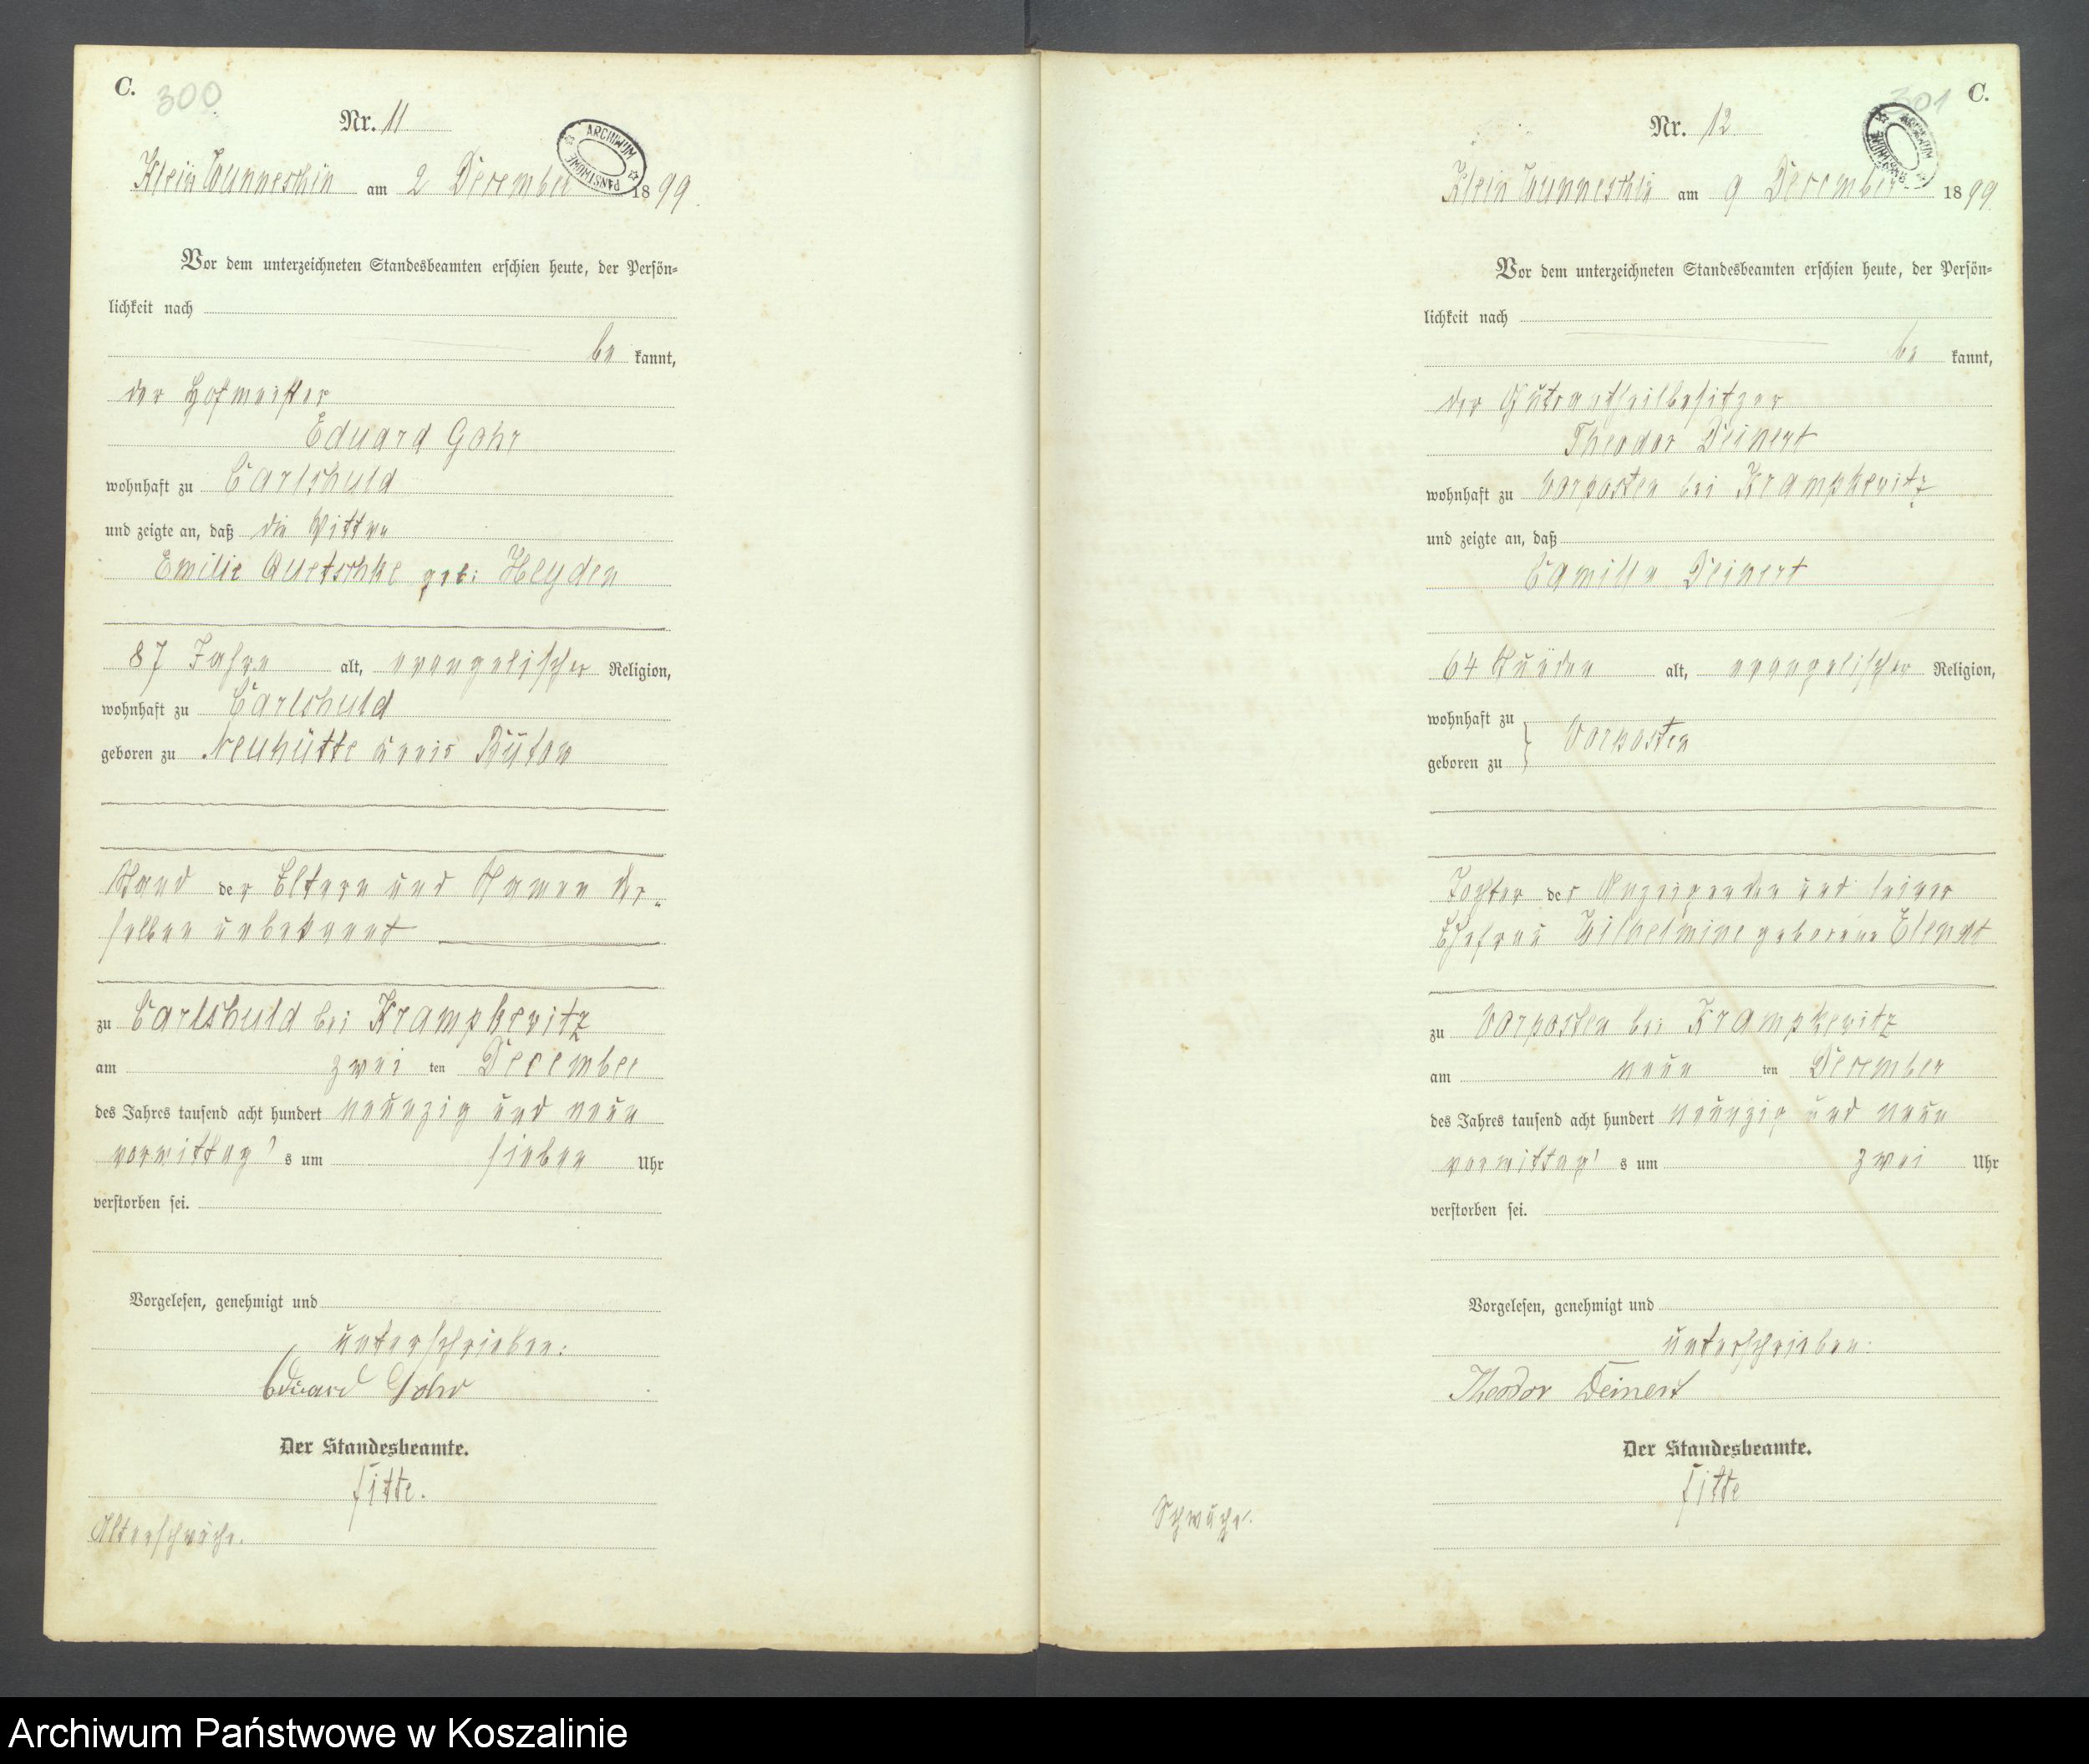 C. 300
Nr. 11
ARCHIWUM PAŃSTWOWE
Klein Wunneschin am 2 December 1899.
Vor dem unterzeichneten Standesbeamten erschien heute, der Persön=
lichkeit nach
be kannt,
der Hofmeister
Eduard Gohr
wohnhaft zu Carlshuld
und zeigte an, daß die Wittwe
Emilie Quetschke geb: Heyden
87 Jahre alt, evangelischer Religion,
wohnhaft zu Carlshuld
geboren zu Neuhütte Kreis Bütow
Stand der Eltern und Namen der=
selben unbekannt
zu Carlshuld bei Krampkevitz
am zwei ten December
des Jahres tausend acht hundert neunzig und neun
vormittag's um sieben Uhr
verstorben sei.
Vorgelesen, genehmigt und
unterschrieben:
Eduard Gohr
Der Standesbeamte.
Fitte.
Altersschwäche.
301 C.
Nr. 12
ARCHIWUM PAŃSTWOWE
Klein Wunneschin am 9 December 1899.
Vor dem unterzeichneten Standesbeamten erschien heute, der Persön=
lichkeit nach
be kannt,
der Gutsantheilbesitzer
Theodor Deinert
wohnhaft zu Vorposten bei Krampkevitz
und zeigte an, daß
Camilla Deinert
64 Stunden alt, evangelischer Religion,
wohnhaft zu
Vorposten
geboren zu
Tochter des Anzeigenden und seiner
Ehefrau Wilhelmine geborene Elendt
zu Vorposten bei Krampkevitz
am neun ten December
des Jahres tausend acht hundert neunzig und neun
vormittag's um zwei Uhr
verstorben sei.
Vorgelesen, genehmigt und
unterschrieben:
Theodor Deinert
Der Standesbeamte.
Fitte
Schwäche.
Archiwum Państwowe w Koszalinie